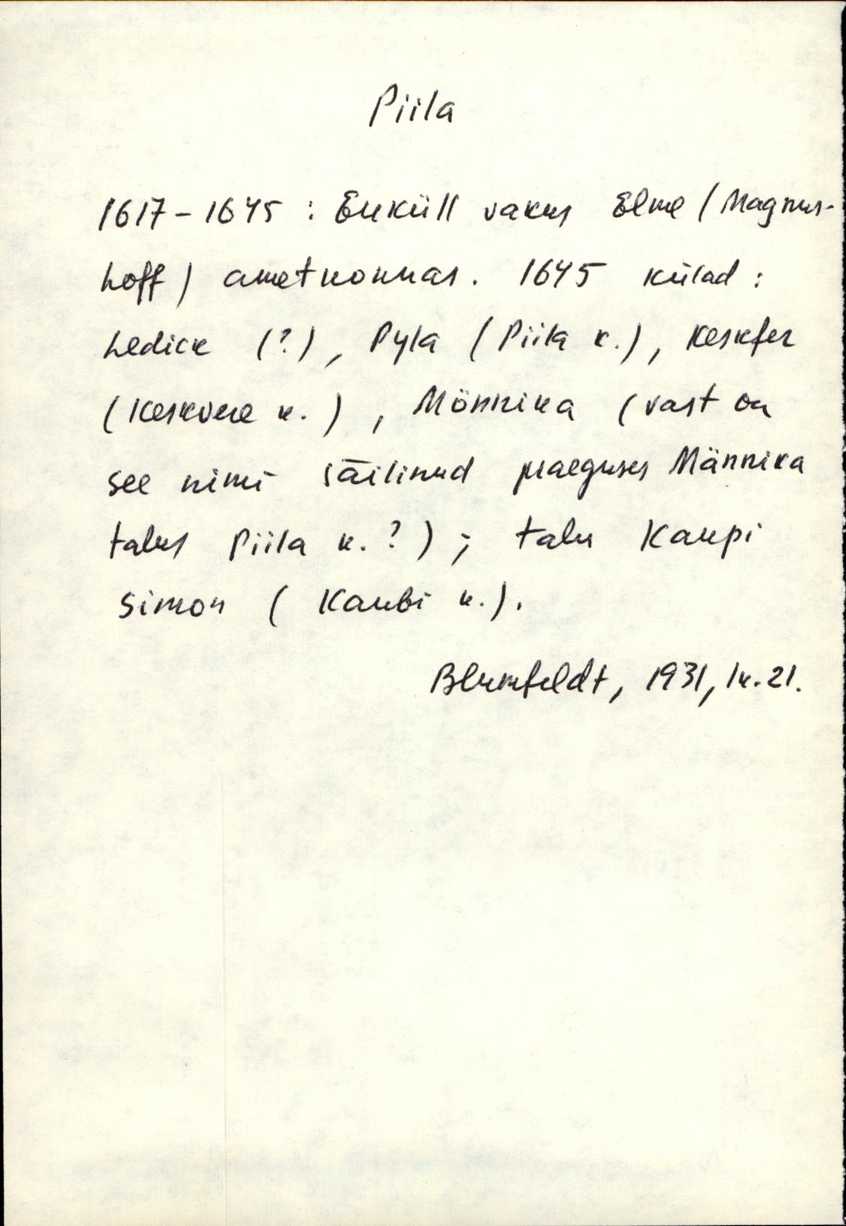 Piila
1617-1645 : Euküll vakus Elme (Magnus-
hoff) ametkonnas. 1645 külad :
Ledick (?), Pyla (Piila k.), Keskfer
(Keskvere k.), Mönnika (vast on
see nimi säilinud praeguses Männika
talus Piila k.?); talu Kaupi
Simon (Kaubi k.).
Blumfeldt, 1931, lk. 21.